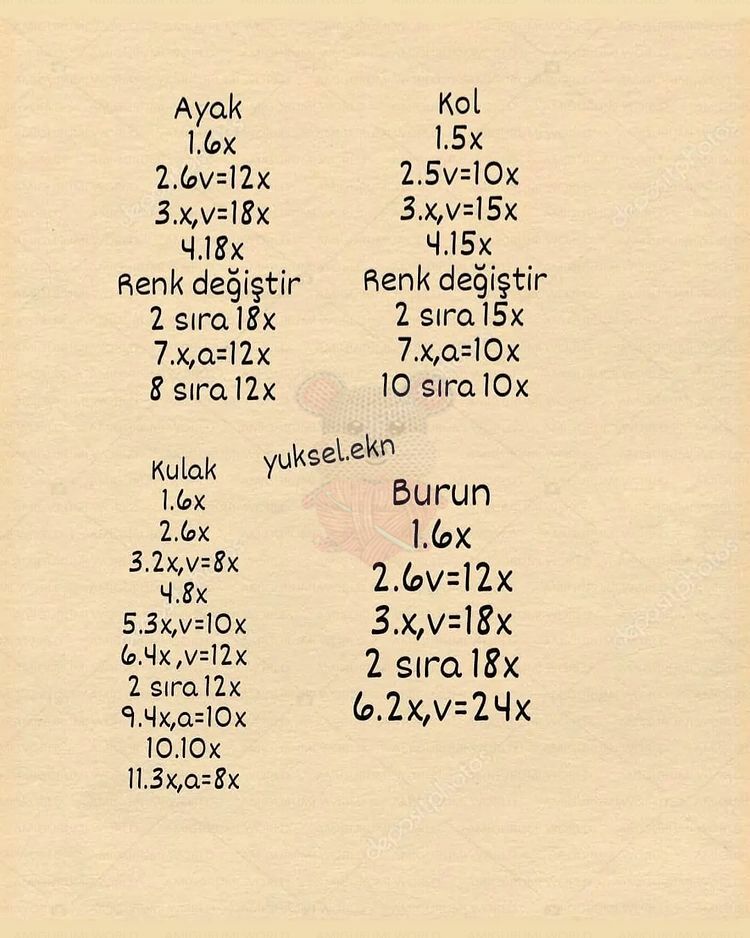 Ayak
1.6x
2.6v=12x
3.x,v=18x
4.18x
Renk değiştir
2 sıra 18x
7.x,a=12x
8 sıra 12x
Kol
1.5x
2.5v=10x
3.x,v=15x
4.15x
Renk değiştir
2 sıra 15x
7.x,a=10x
10 sıra 10x
yuksel.ekn
Kulak
1.6x
2.6x
3.2x,v=8x
4.8x
5.3x,v=10x
6.4x,v=12x
2 sıra 12x
9.4x,a=10x
10.10x
11.3x,a=8x
Burun
1.6x
2.6v=12x
3.x,v=18x
2 sıra 18x
6.2x,v=24x
depositphotos
depositphotos
depositphotos